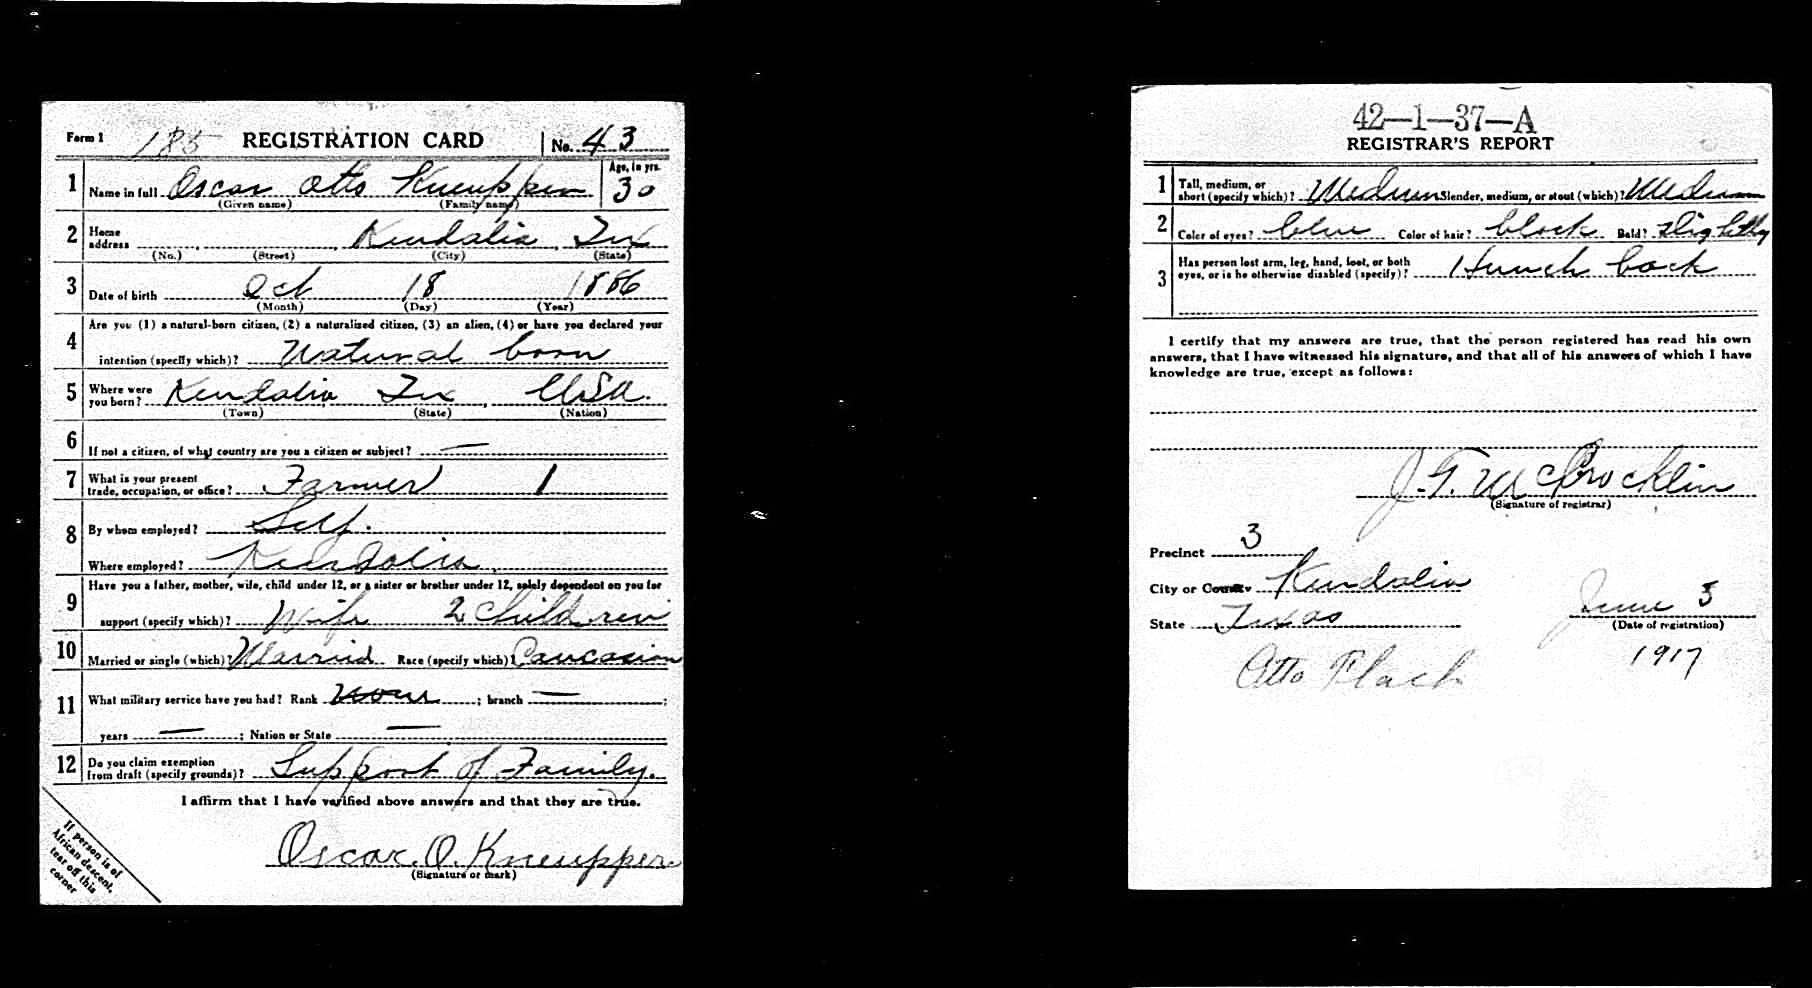 Form 1 185 REGISTRATION CARD No. 43
1 Name in full Oscar Otto Kneupper Age, in yrs. 30
(Given name) (Family name)
2 Home address Kendalia Tex
(No.) (Street) (City) (State)
3 Date of birth Oct 18 1886
(Month) (Day) (Year)
4 Are you (1) a natural-born citizen, (2) a naturalized citizen, (3) an alien, (4) or have you declared your
intention (specify which)? Natural born
5 Where were you born? Kendalia Tex USA.
(Town) (State) (Nation)
6 If not a citizen, of what country are you a citizen or subject? —
7 What is your present trade, occupation, or office? Farmer 1
8 By whom employed? Self.
Where employed? Kendalia.
9 Have you a father, mother, wife, child under 12, or a sister or brother under 12, solely dependent on you for
support (specify which)? Wife 2 Children
10 Married or single (which)? Married Race (specify which)? Caucasian
11 What military service have you had? Rank None ; branch — ;
years — ; Nation or State —
12 Do you claim exemption from draft (specify grounds)? Support of Family.
I affirm that I have verified above answers and that they are true.
Oscar. O. Kneupper
(Signature or mark)
If person is of
African descent,
tear off this
corner
42—1—37—A
REGISTRAR'S REPORT
1 Tall, medium, or short (specify which)? Medium Slender, medium, or stout (which)? Medium
2 Color of eyes? blue Color of hair? black Bald? slightly
3 Has person lost arm, leg, hand, foot, or both
eyes, or is he otherwise disabled (specify)? Hunch back
I certify that my answers are true, that the person registered has read his own
answers, that I have witnessed his signature, and that all of his answers of which I have
knowledge are true, except as follows:
J. G. McCrocklin
(Signature of registrar)
Precinct 3
City or County Kendalia
State Texas
June 5
(Date of registration)
1917
Otto Flach